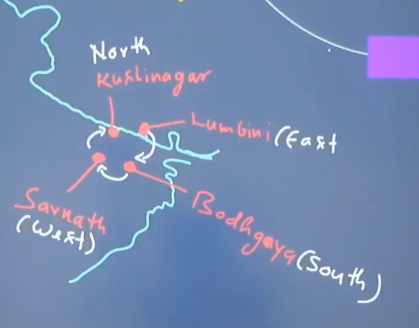 North
Kushinagar
Lumbini (East
Sarnath
(West)
Bodhgaya (South)